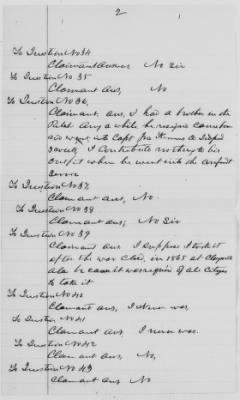 2
To Question No 34
Claimant answer No Sir
To Question No 35
Claimant ans, No
To Question No 36,
Claimant ans, I had a brother in the
Rebel Army a while he resigned
and went into Capt
I Contribute nothing to his
outfit when he went into the confed
Service
To Question No 37.
Claimant ans, No.
To Question No 38
Claimant ans, No Sir
To Question No 39
Claimant ans I suppose I took it
after the war close, in 1865 at
Ala because it was required of all Citizens
to take it
To Question No 40
Claimant ans, I never was,
To Question No 41
Claimant ans, I never was.
To Question No 42
Claimant ans, No,
To Question No 43
Claimant ans No